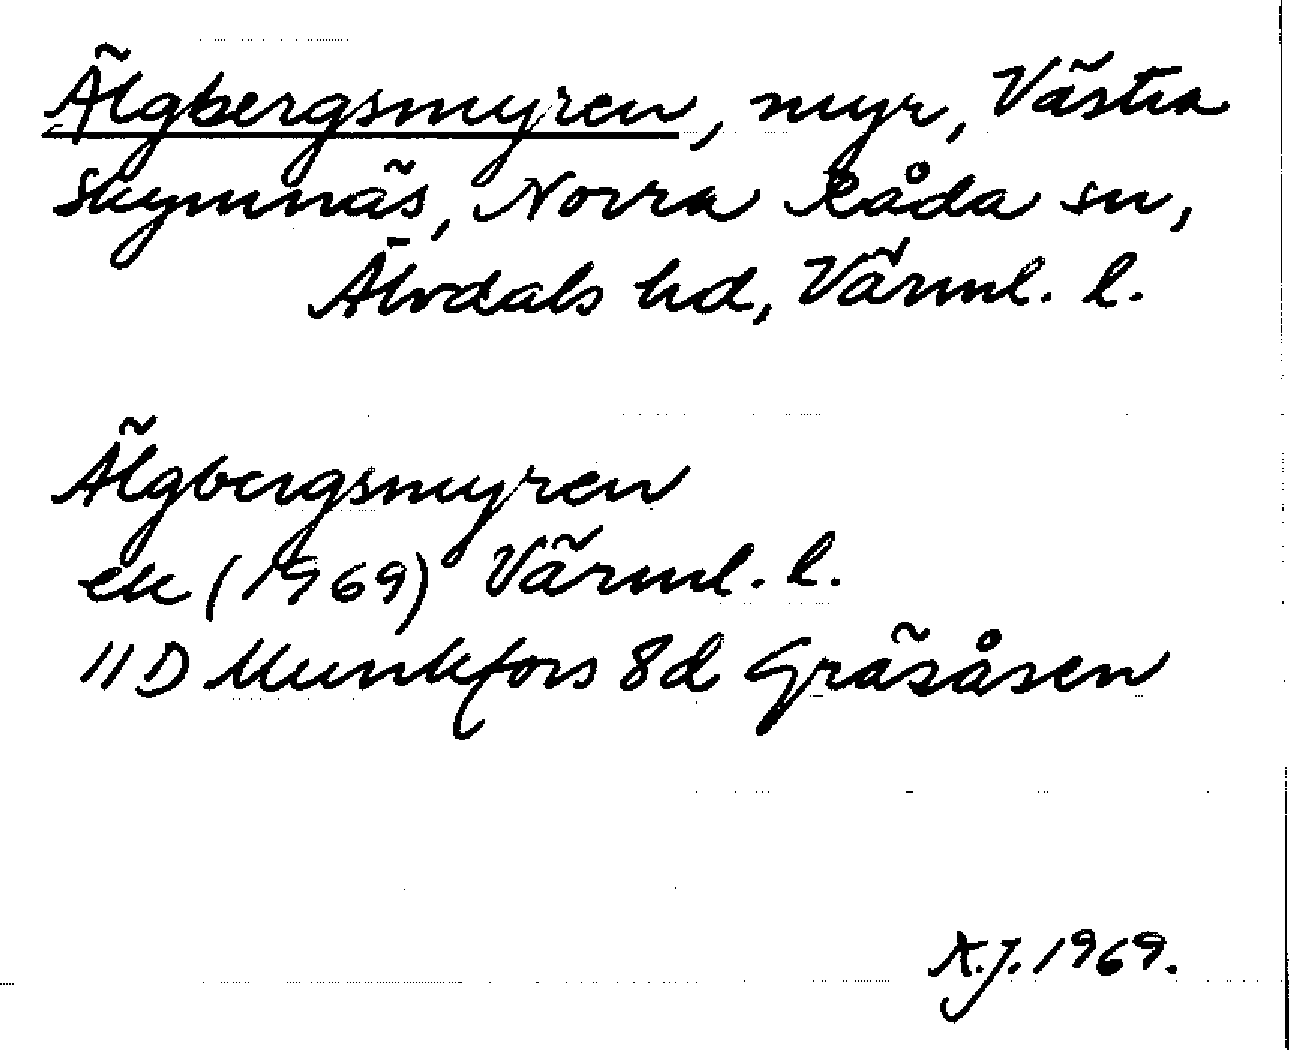 Älgbergsmyren, myr, Västra
Skymnäs, Norra Råda sn,
Älvdals hd, Värml. l.
Älgbergsmyren
ek (1969) Värml. l.
11D Munkfors 8d Gräsåsen
A.J. 1969.